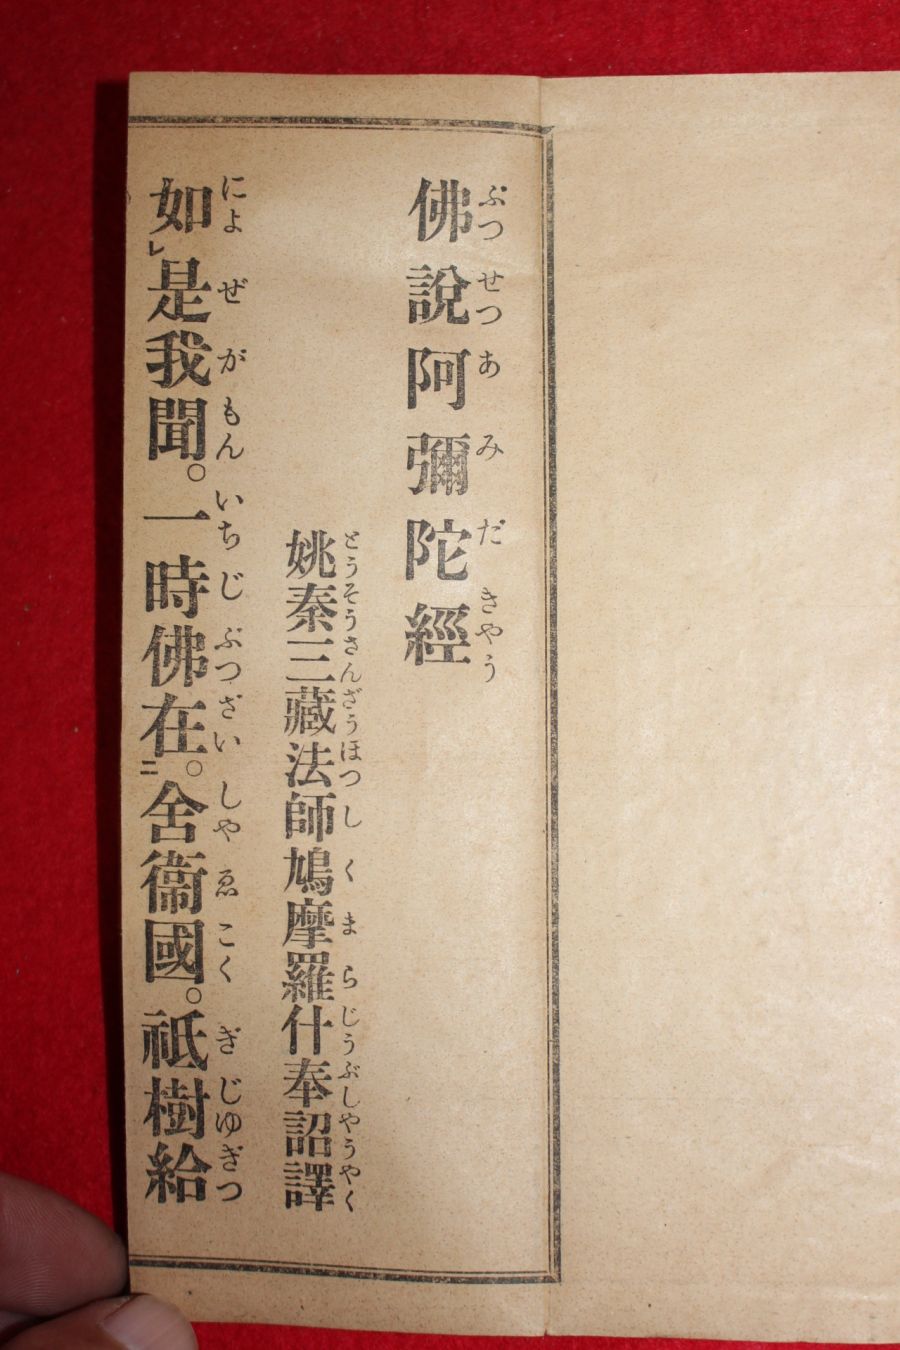 佛說阿彌陀經
ぶつせつあみだきやう
姚秦三藏法師鳩摩羅什奉詔譯
とうそうさんざうほつしくまらじうぶしやうやく
如レ是我聞。一時佛在。二舍衞國。祇樹給
によぜがもんいちじぶつざいしやゑこくぎじゆぎつ